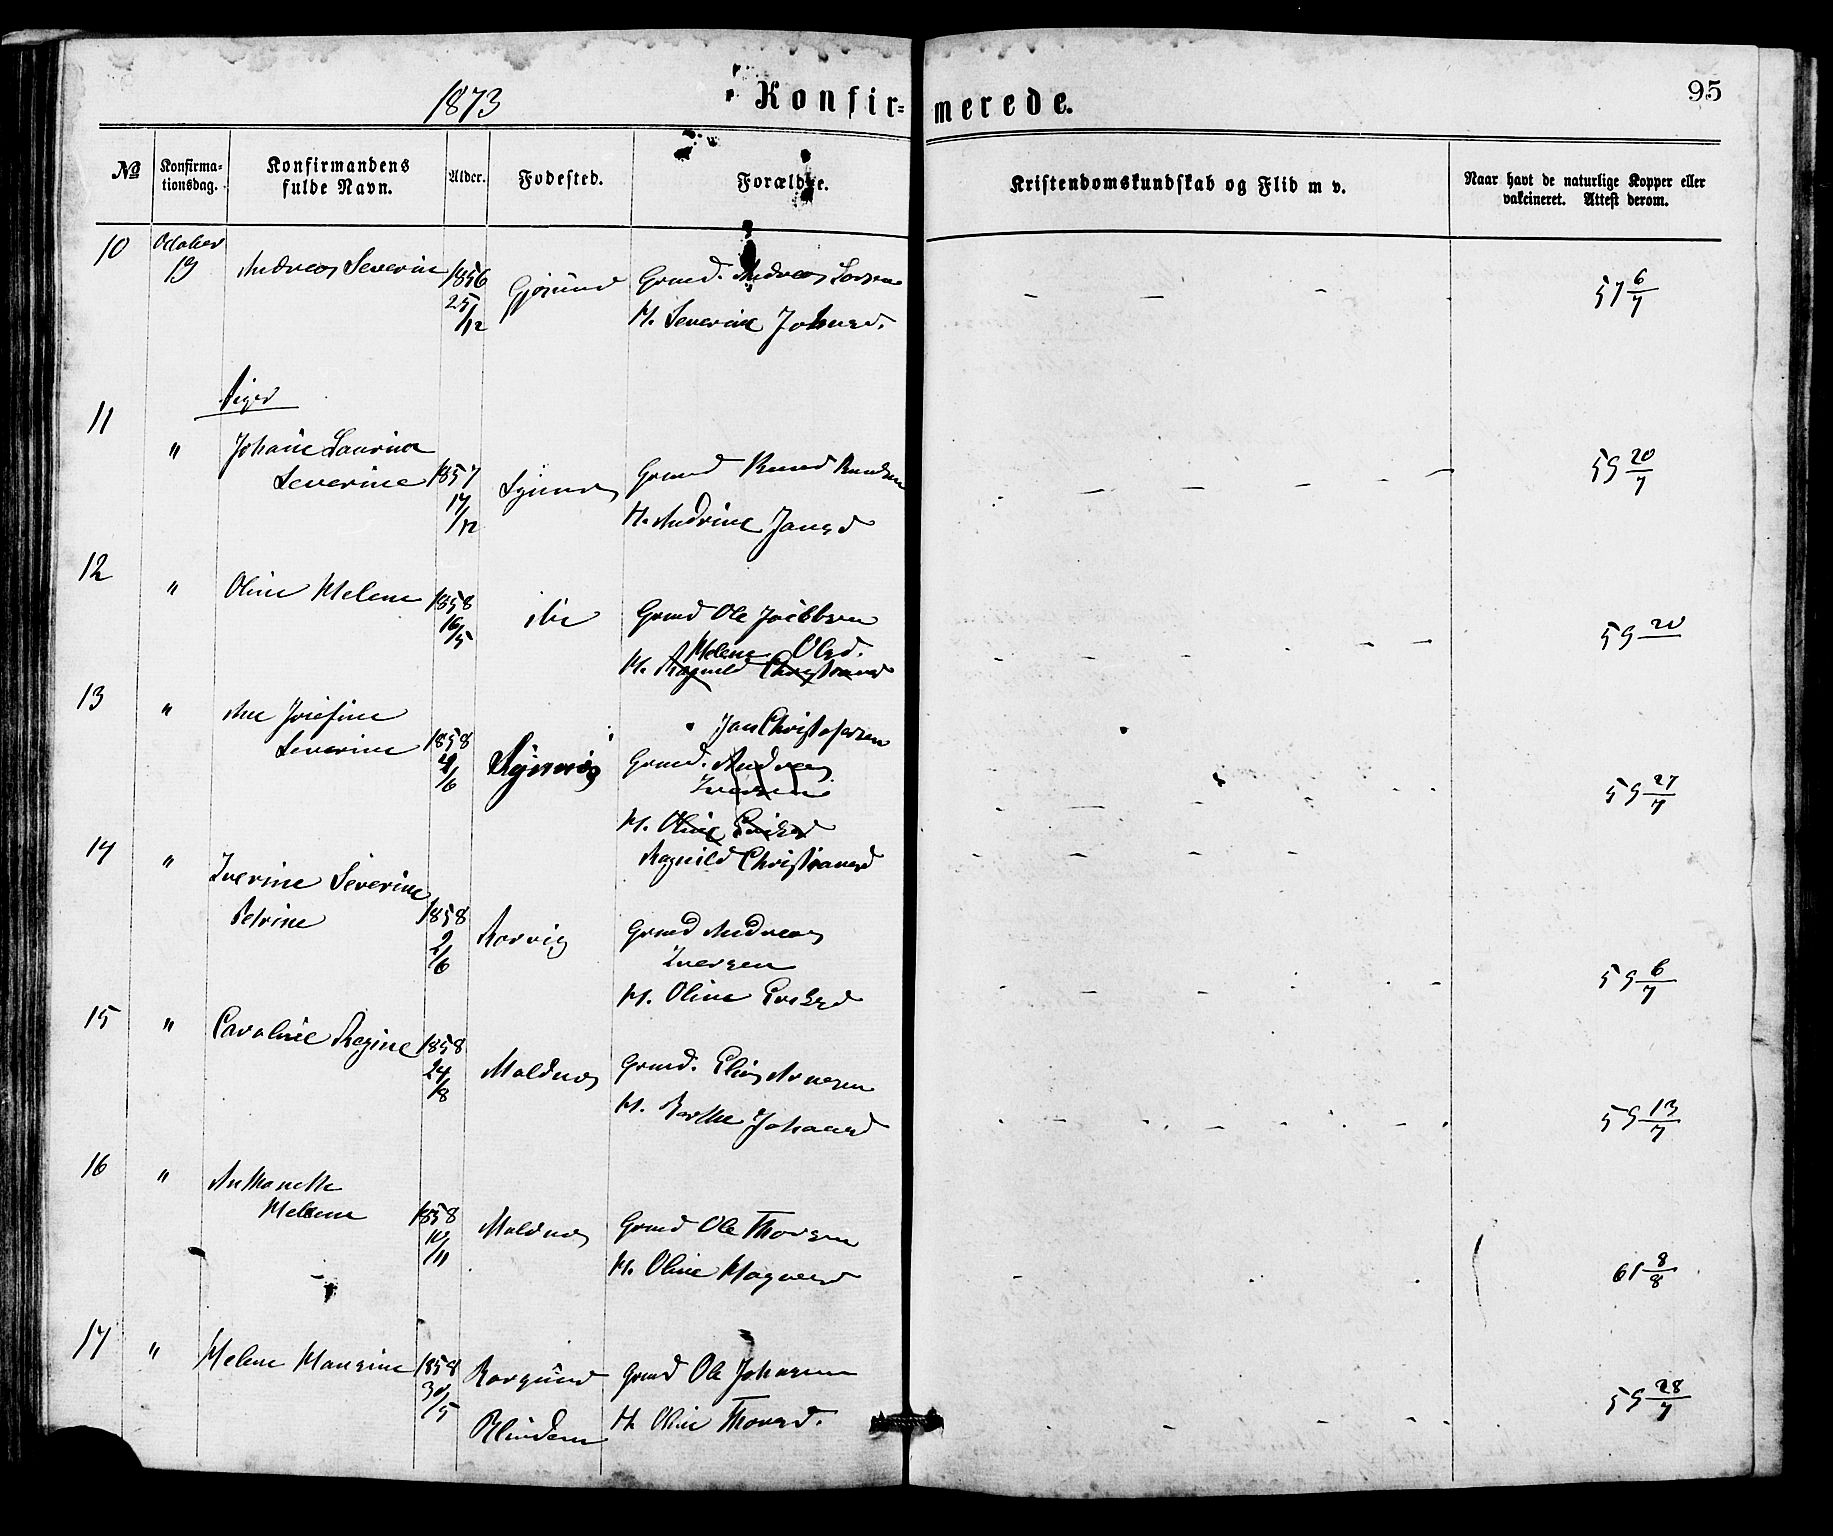 1873
Konfir-merede.
95
No
Konfirma-
tionsdag.
Konfirmandens
fulde Navn.
Alder.
Fødested.
Forældre.
Kristendomskundskab og Flid m v.
Naar havt de naturlige Kopper eller
vakcineret. Attest derom.
10 October
19 Andreas Severin 1856
25/12 Gjøsund Grmd. Andreas
H. Severine Johnsd. 57 6/7
Piger
11 " Johane Laurine
Severine 1857
17/12 Grmd Knud Knudsen
H. Andrine Jansd 59 20/7
12 " Oline Helene 1858
16/5 ibd Grmd Ole
Helene Olsd.
H. Ragnild Christiansd 59 20
13 " Ane Josefine
Severine 1858
4/6 Jan Christofersen
Grmd. Andreas
Iversen
H. Oline
Ragnild Christiansd 59 27/7
14 " Iverine Severine
Petrine 1858
2/6 Rørvig Grmd Andreas
Iversen
H. Oline 59 6/7
15 " Caroline Regine 1858
24/8 Moldnes Grmd. Elias Arnesen
H. Berthe Johansd 59 13/7
16 " Anthonette
Helene 1858
10/11 Moldnes Grmd Ole Thorsen
H. Oline Magnesd 61 8/8
17 " Helene Hansine 1858
30/5 Borgund
Blindem Grmd Ole Johnsen
H. Oline Thorsd. 59 28/7